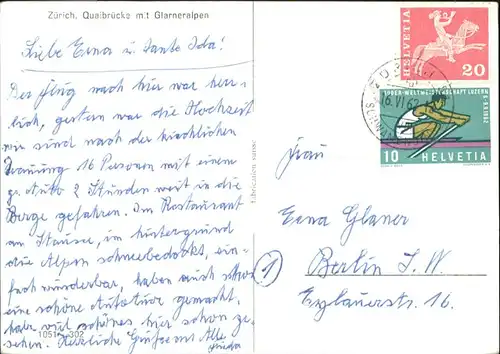 Zürich, Quaibrücke mit Glarneralpen
Liebe Erna u. Tante Ida!
Der Flug nach hier war herr-
lich, gestern war die Hochzeit
wir sind nach der kirchlichen
Trauung 16 Personen mit einem
gr. Auto 2 Stunden weit in die
Berge gefahren. Im Restaurant
am Stausee, im Hintergrund
die Alpen schneebedeckt, ein-
fach wunderbar, haben auch schon
eine schöne Autotour gemacht,
habe viel schönes hier schon ge-
sehen. Herzliche Grüße an Alle
1051 302
Fabrication suisse
HELVETIA
20
RUDER-WELTMEISTERSCHAFT LUZERN
10 HELVETIA
16.VI.62
Frau
Erna Glaner
Berlin S.W.
1